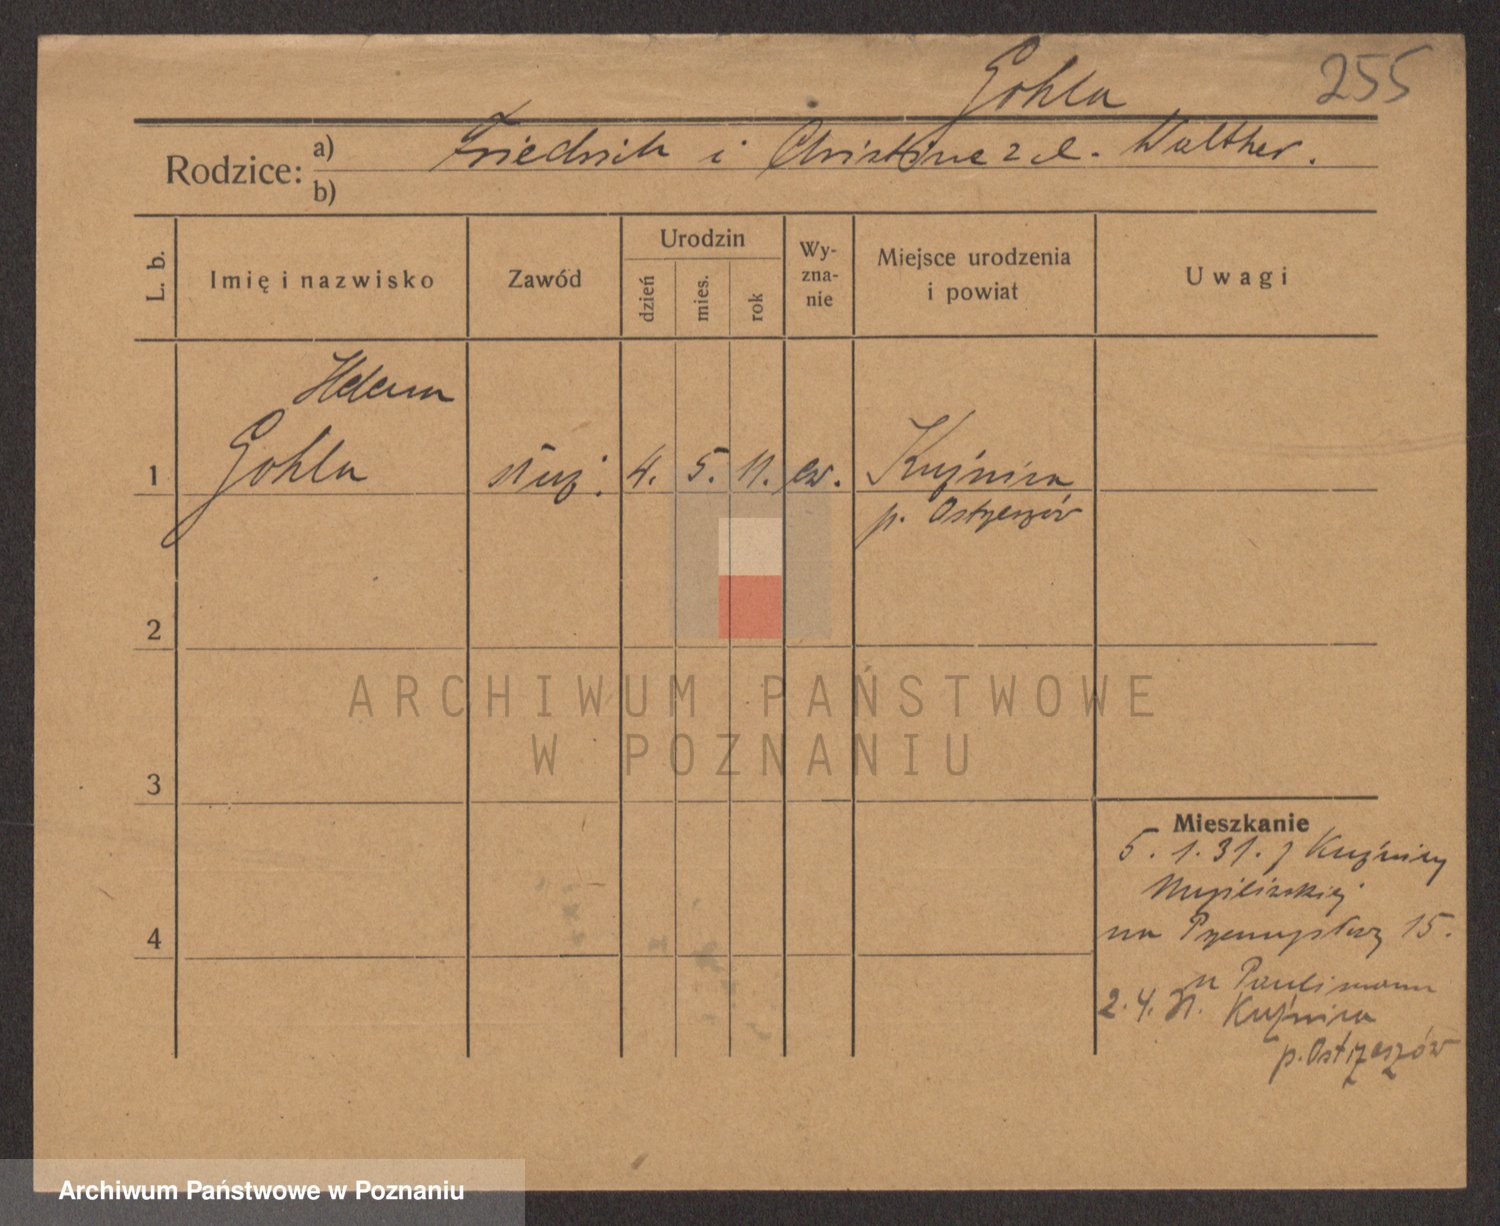 Gohla
255
Rodzice: a) Friedrich i Christine z d. Walther.
b)
L. b.
Imię i nazwisko
Zawód
Urodzin
dzień
mies.
rok
Wy-
zna-
nie
Miejsce urodzenia
i powiat
Uwagi
Helena
1 Gohla służ. 4. 5. 11. ew. Kuźnica
p. Ostrzeszów
2
ARCHIWUM PAŃSTWOWE
W POZNANIU
3
4
Mieszkanie
5. 1. 31. z Kuźnicy
Myślińskiej
na Przemysłową 15.
u
2. 4. 31. Kuźnica
p. Ostrzeszów
Archiwum Państwowe w Poznaniu